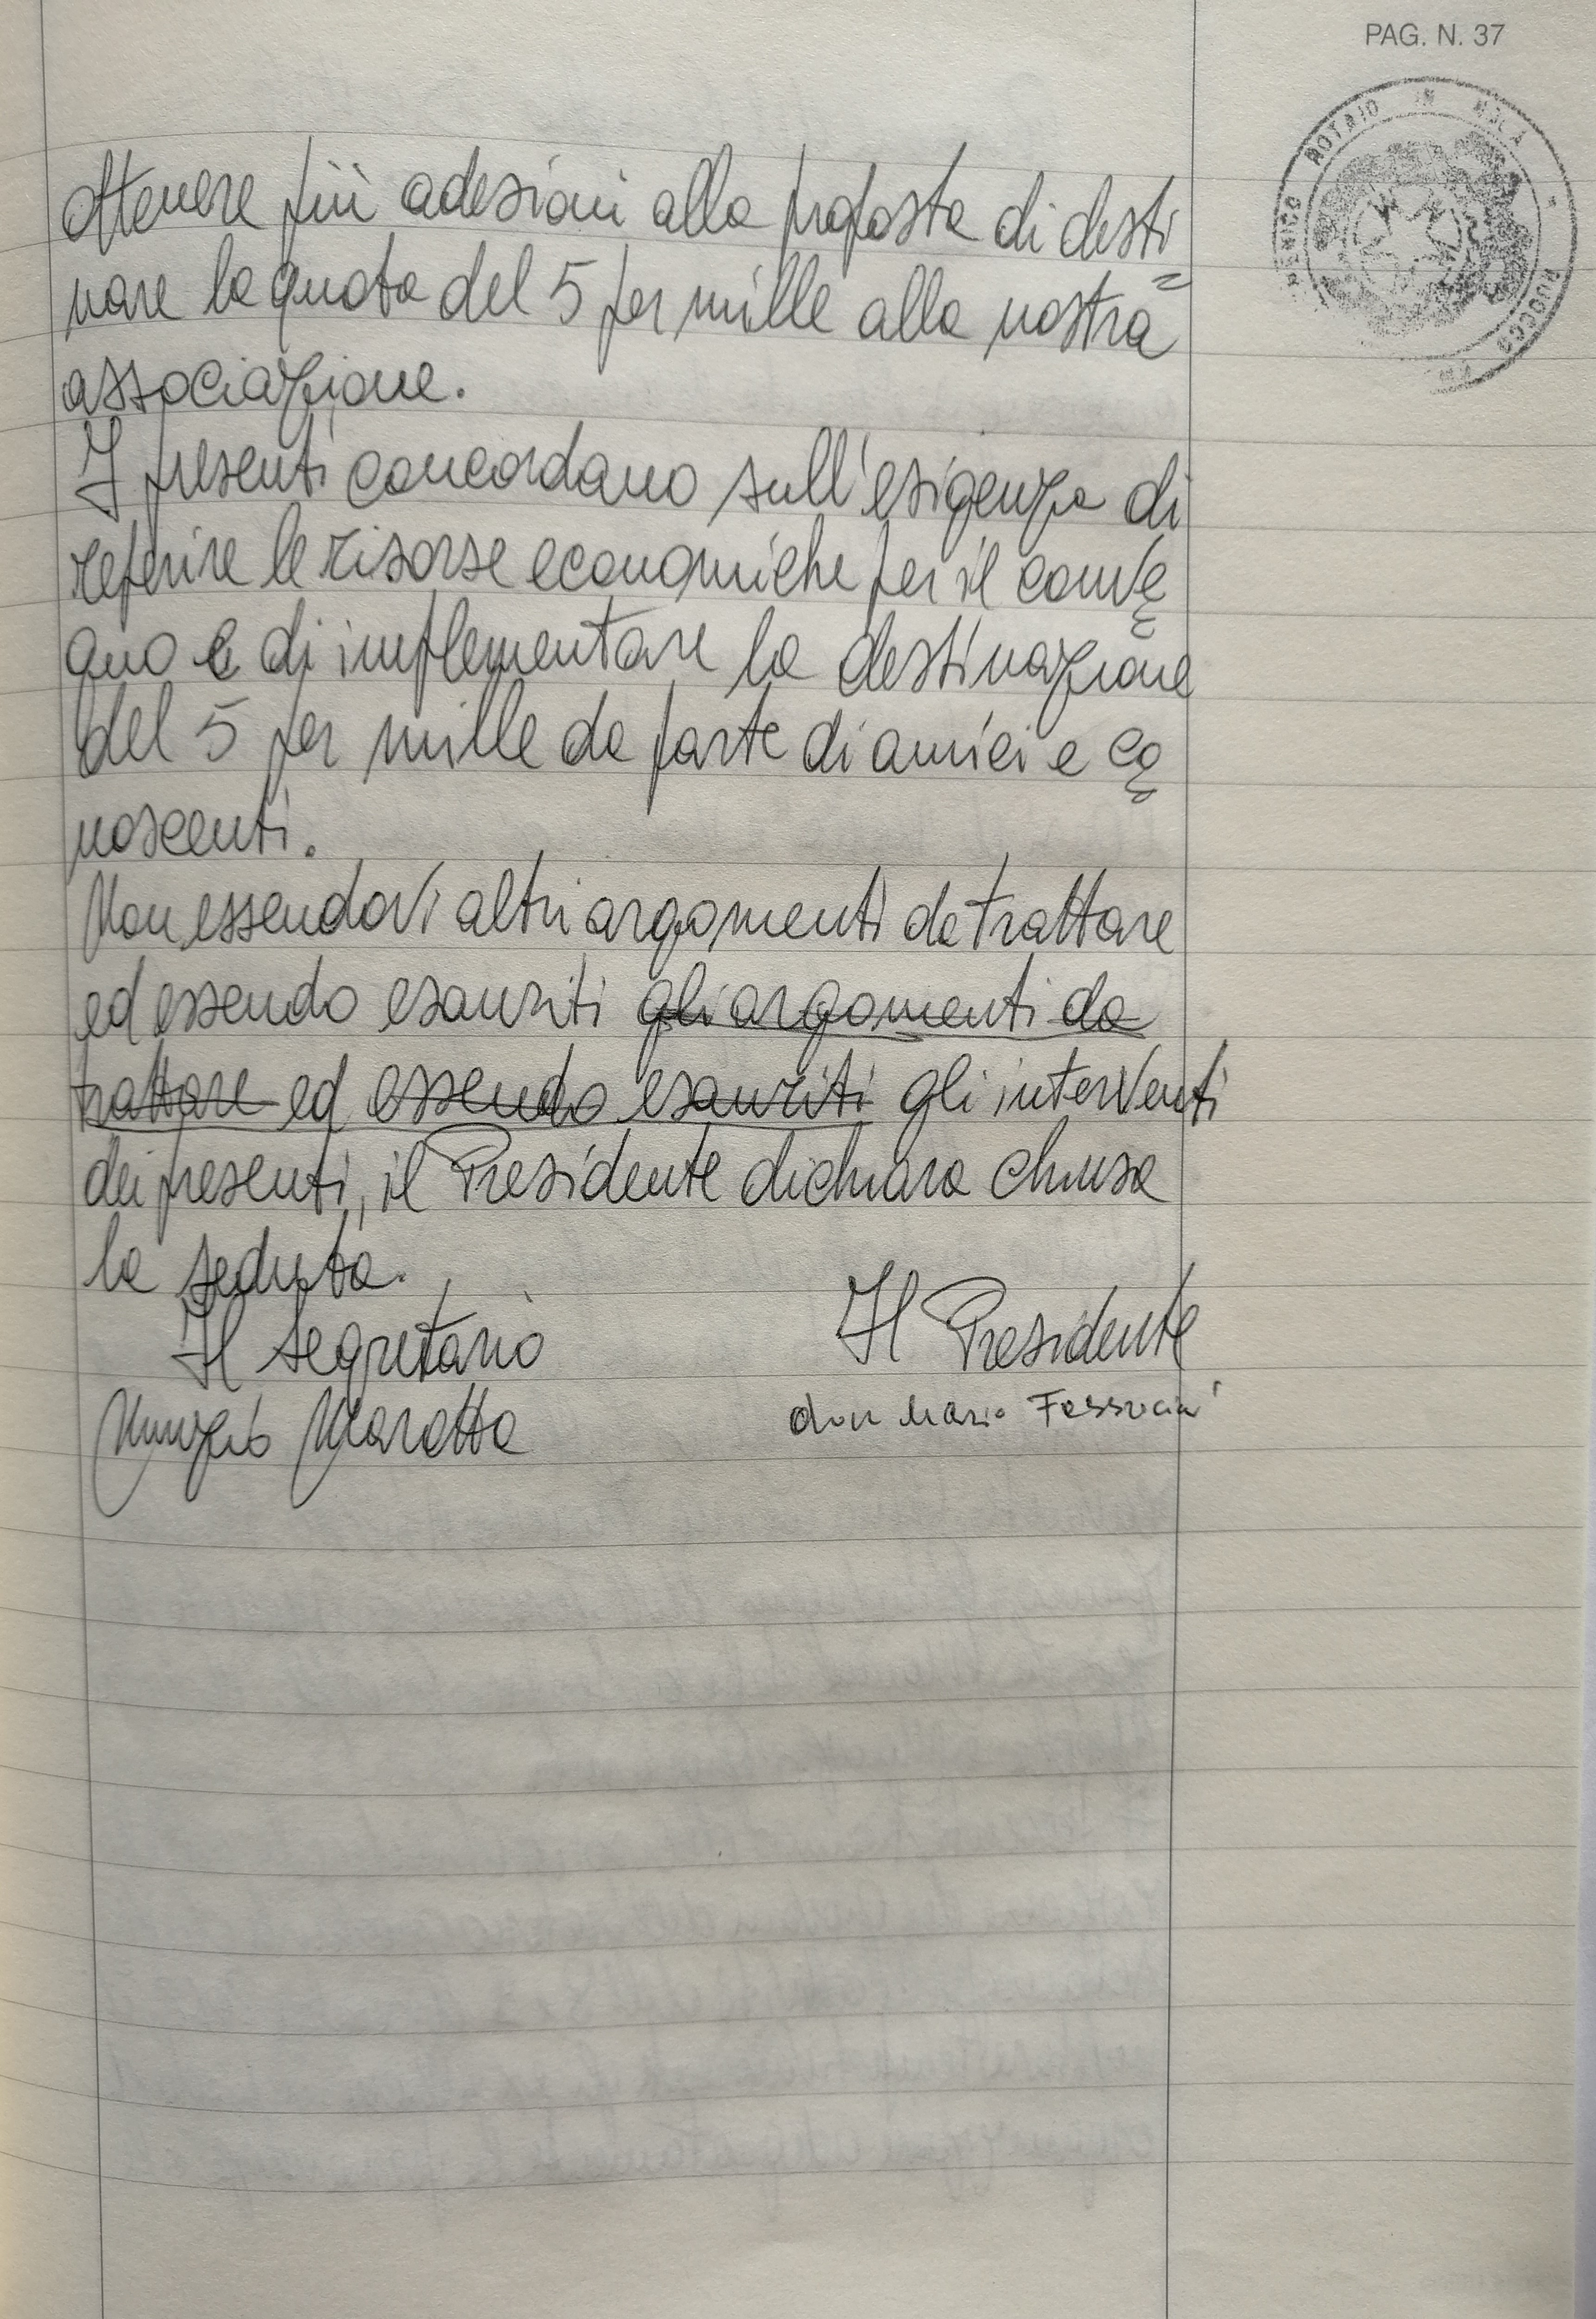 PAG. N. 37
NOTAIO IN NOLA
RUOCCO
ottenere più adesioni alla proposta di desti=
nare la quota del 5 per mille alla nostra
associazione.
I presenti concordano sull'esigenza di
reperire le risorse economiche per il conve
gno e di implementare la destinazione
del 5 per mille da parte di amici e co
noscenti.
Non essendovi altri argomenti da trattare
ed essendo esauriti gli argomenti da
trattare ed essendo esauriti gli interventi
dei presenti, il Presidente dichiara chiusa
la seduta.
Il Segretario Il Presidente
Nunzio Marotta don Mario